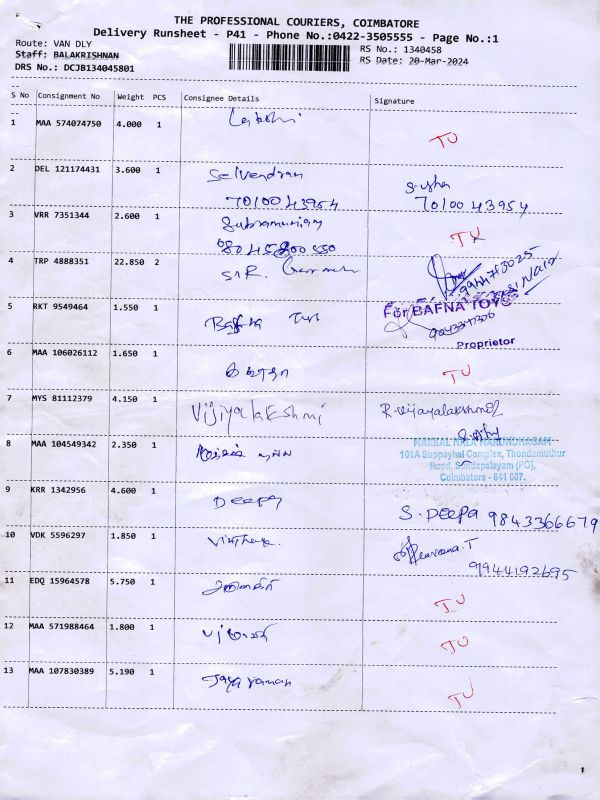 THE PROFESSIONAL COURIERS, COIMBATORE
Delivery Runsheet - P41 - Phone No.:0422-3505555 - Page No.:1
Route: VAN DLY
RS No.: 1340458
Staff: BALAKRISHNAN
RS Date: 20-Mar-2024
DRS No.: DCJB134045801
S No Consignment No Weight PCS Consignee Details Signature
1 MAA 574074750 4.000 1 TU
2 DEL 121174431 3.600 1 Selvendran
7010043954 7010043954
3 VRR 7351344 2.600 1 TX
4 TRP 4888351 22.850 2
5 RKT 9549464 1.550 1 For BAFNA TOYS
Proprietor
6 MAA 106026112 1.650 1 TU
7 MYS 81112379 4.150 1 Vijiyalakshmi R.vijayalakshmi
8 MAA 104549342 2.350 1 MAKKAL NALA MARUNDHAGAM
101A Suppayhal Complex, Thondamuthur
Road, Sundapalayam (PO),
Coimbatore - 641 007.
9 KRR 1342956 4.600 1 Deepa S. Deepa 9843366679
10 VDK 5596297 1.850 1
9944192695
11 EDQ 15964578 5.750 1 TU
12 MAA 571988464 1.800 1 TU
13 MAA 107830389 5.190 1 Jayaraman TU